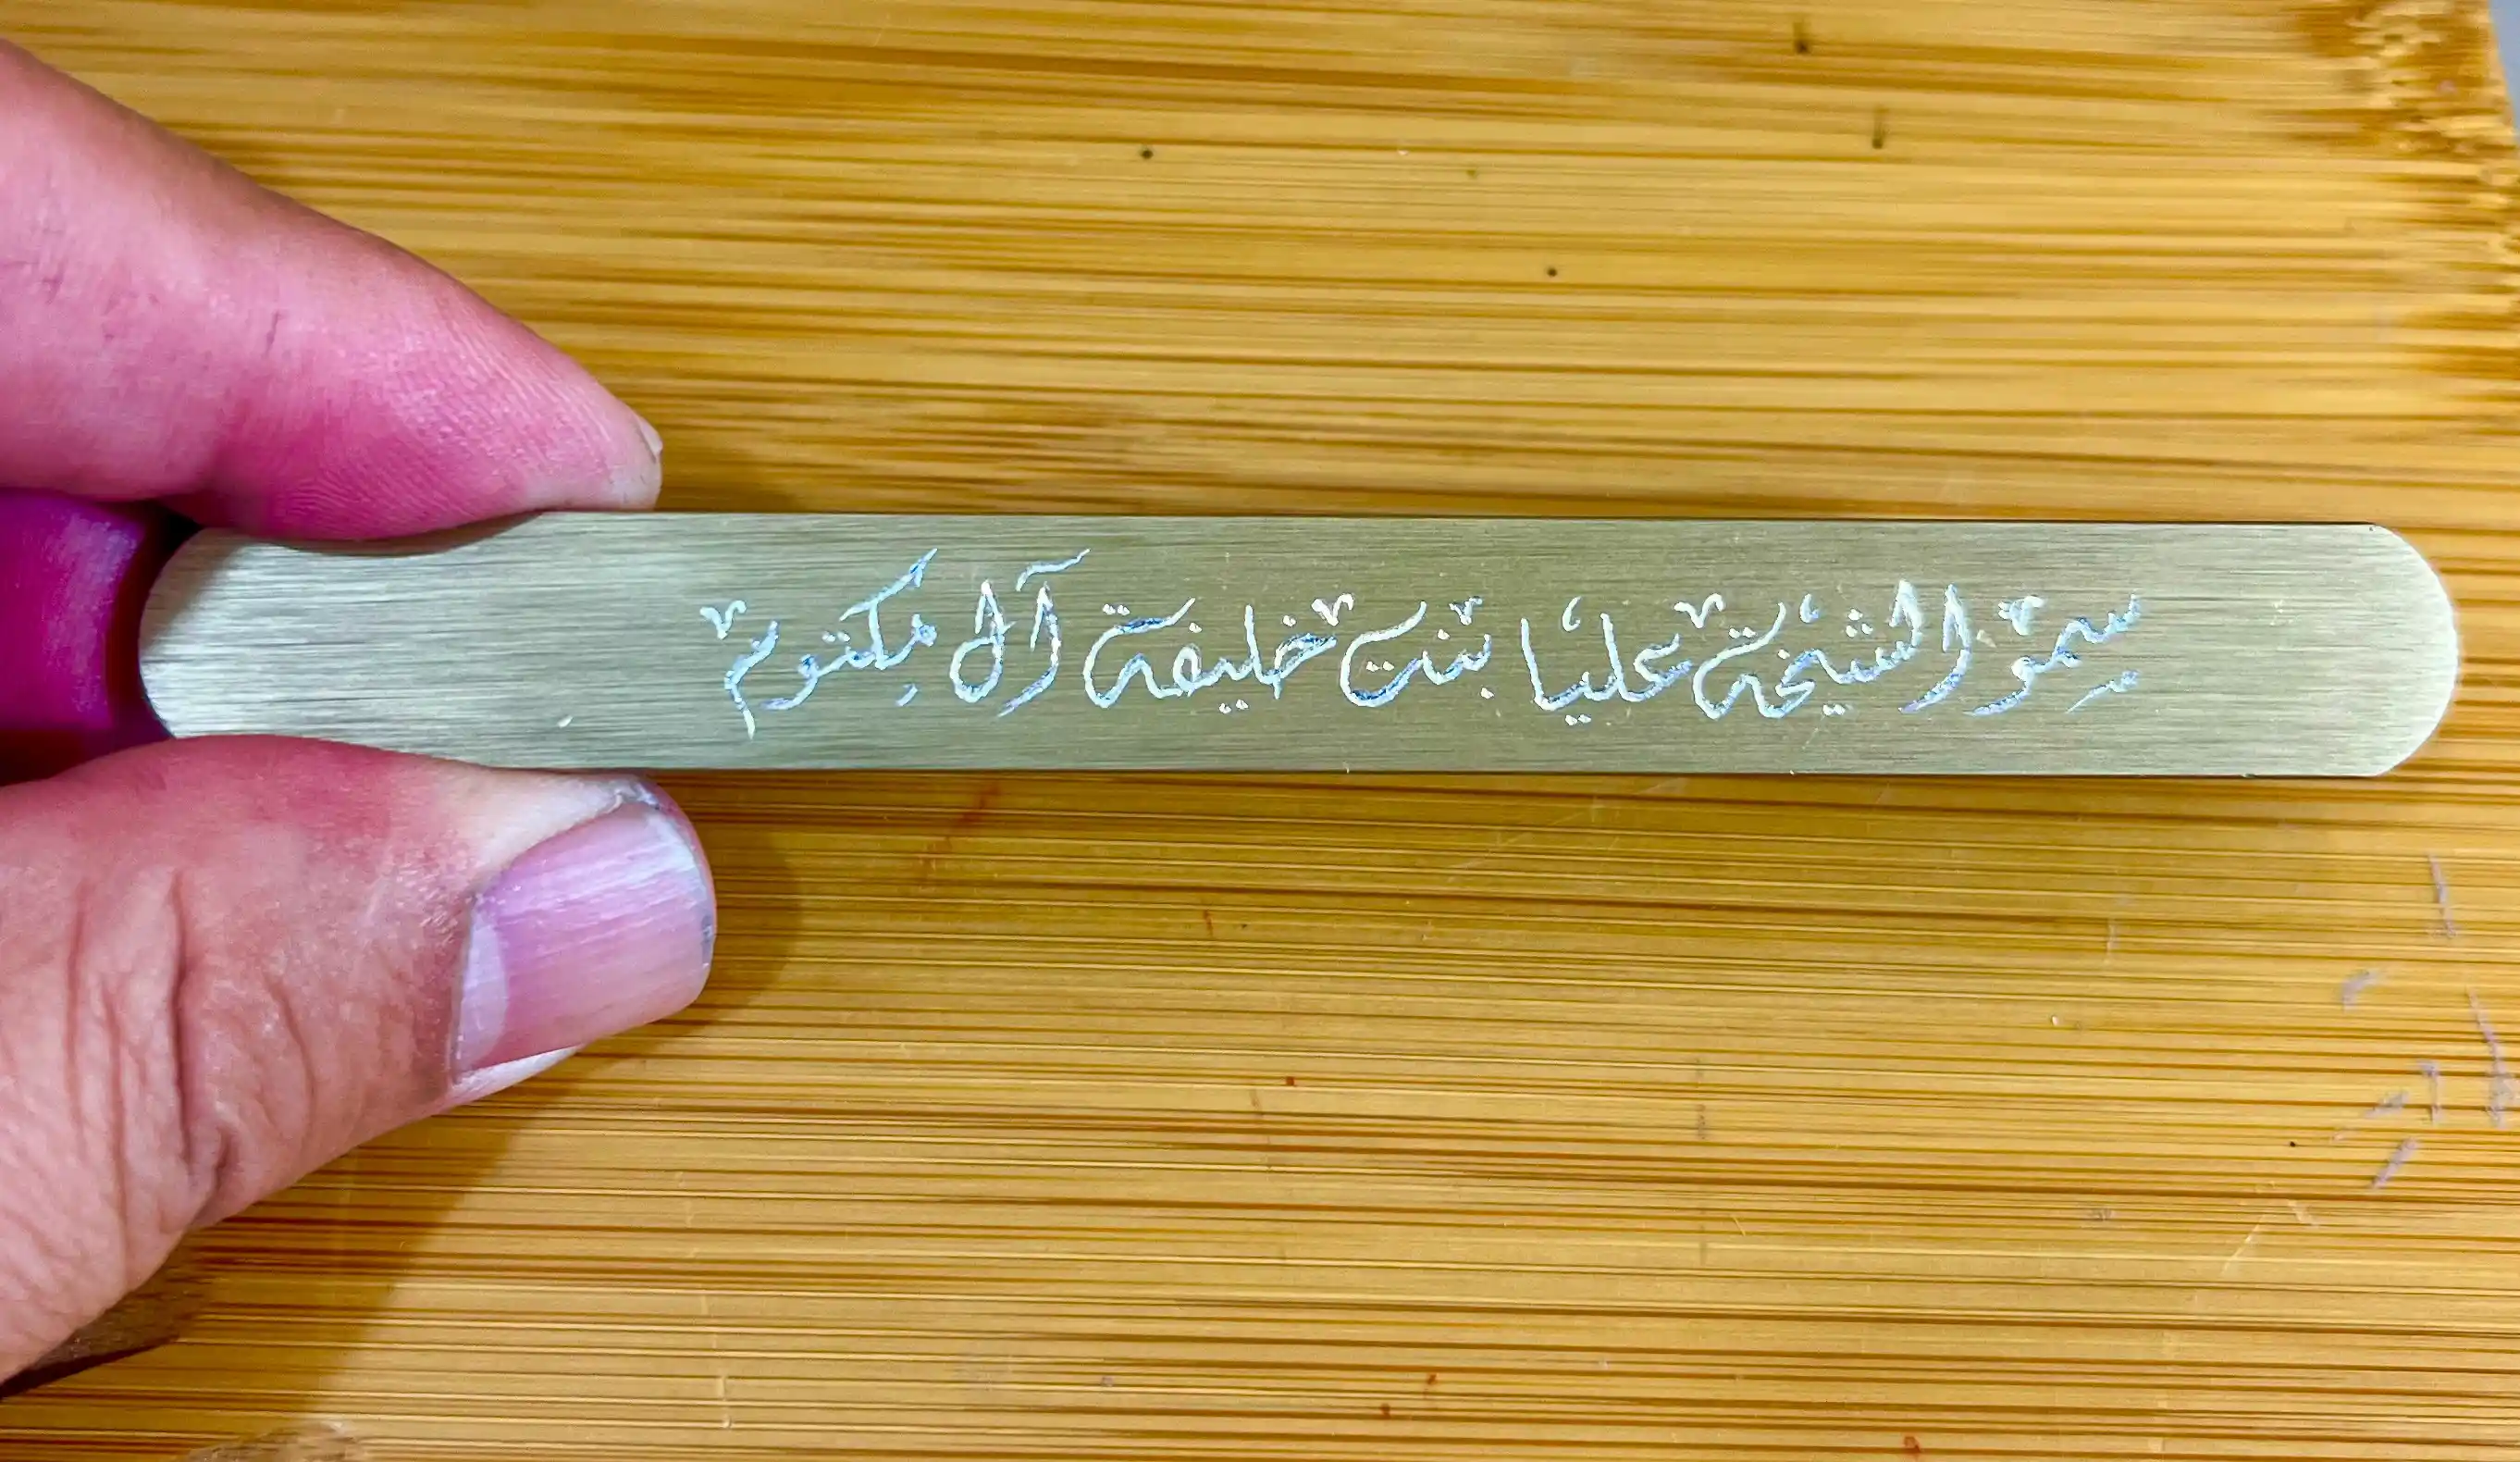 سموّ الشيخة عليا بنت خليفة آل مكتوم